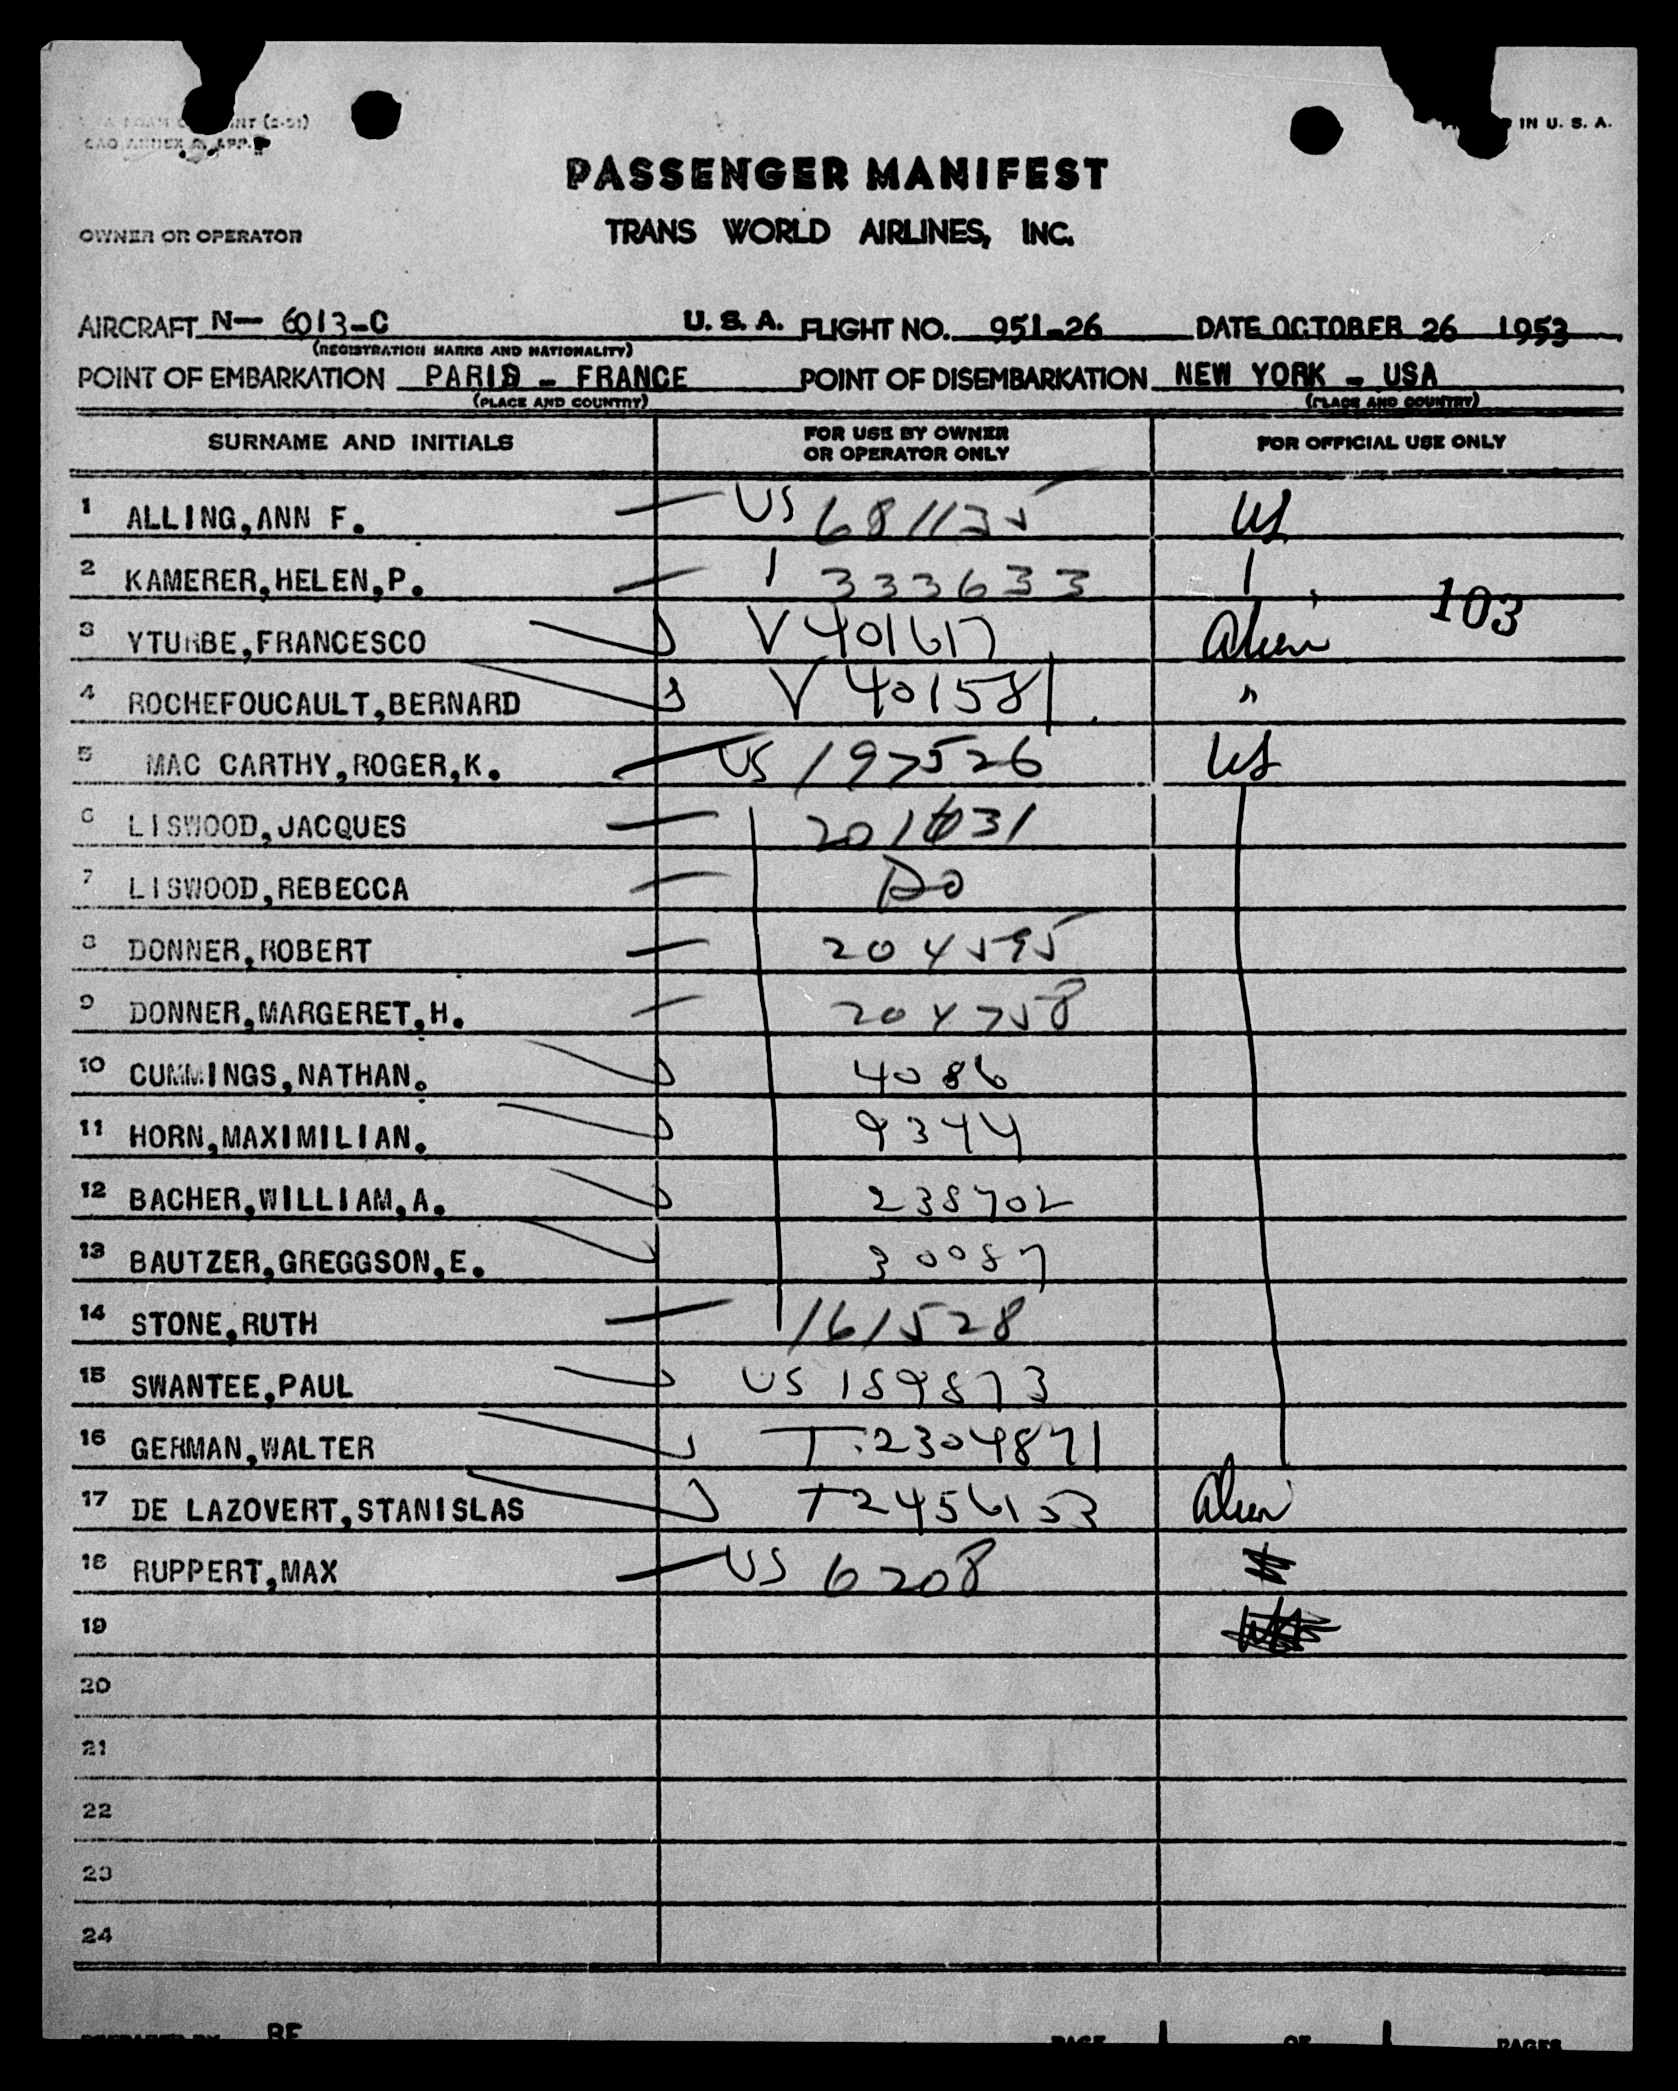 CAO ANNEX 9, APP.
IN U. S. A.
PASSENGER MANIFEST
OWNER OR OPERATOR TRANS WORLD AIRLINES, INC.
AIRCRAFT N— 6013-C U. S. A. FLIGHT NO. 951-26 DATE OCTOBER 26 1953
(REGISTRATION MARKS AND NATIONALITY)
POINT OF EMBARKATION PARIS - FRANCE POINT OF DISEMBARKATION NEW YORK - USA
(PLACE AND COUNTRY) (PLACE AND COUNTRY)
SURNAME AND INITIALS FOR USE BY OWNER OR OPERATOR ONLY FOR OFFICIAL USE ONLY
1 ALLING,ANN F. US 681135 US
2 KAMERER,HELEN,P. 333633
103
3 YTURBE,FRANCESCO V 401617 Alien
4 ROCHEFOUCAULT,BERNARD V 401581 "
5 MAC CARTHY,ROGER,K. US 197526 US
6 LISWOOD,JACQUES 201631
7 LISWOOD,REBECCA Do
8 DONNER,ROBERT 204595
9 DONNER,MARGERET,H. 204758
10 CUMMINGS,NATHAN. 4086
11 HORN,MAXIMILIAN. 9344
12 BACHER,WILLIAM,A. 238702
13 BAUTZER,GREGGSON,E. 30087
14 STONE,RUTH 161528
15 SWANTEE,PAUL US 189873
16 GERMAN,WALTER T.2304871
17 DE LAZOVERT,STANISLAS T2456153 Alien
18 RUPPERT,MAX US 6208
19
20
21
22
23
24
PREPARED BY RF PAGE OF PAGES